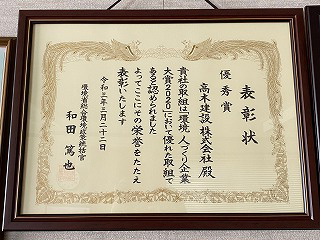 表彰状
優秀賞
高木建設株式会社殿
貴社の取組は環境人づくり企業
大賞2020において優れた取組で
あると認められました
よってここにその栄誉をたたえ
表彰いたします
令和三年三月二十二日
環境省総合環境政策統括官
和田篤也